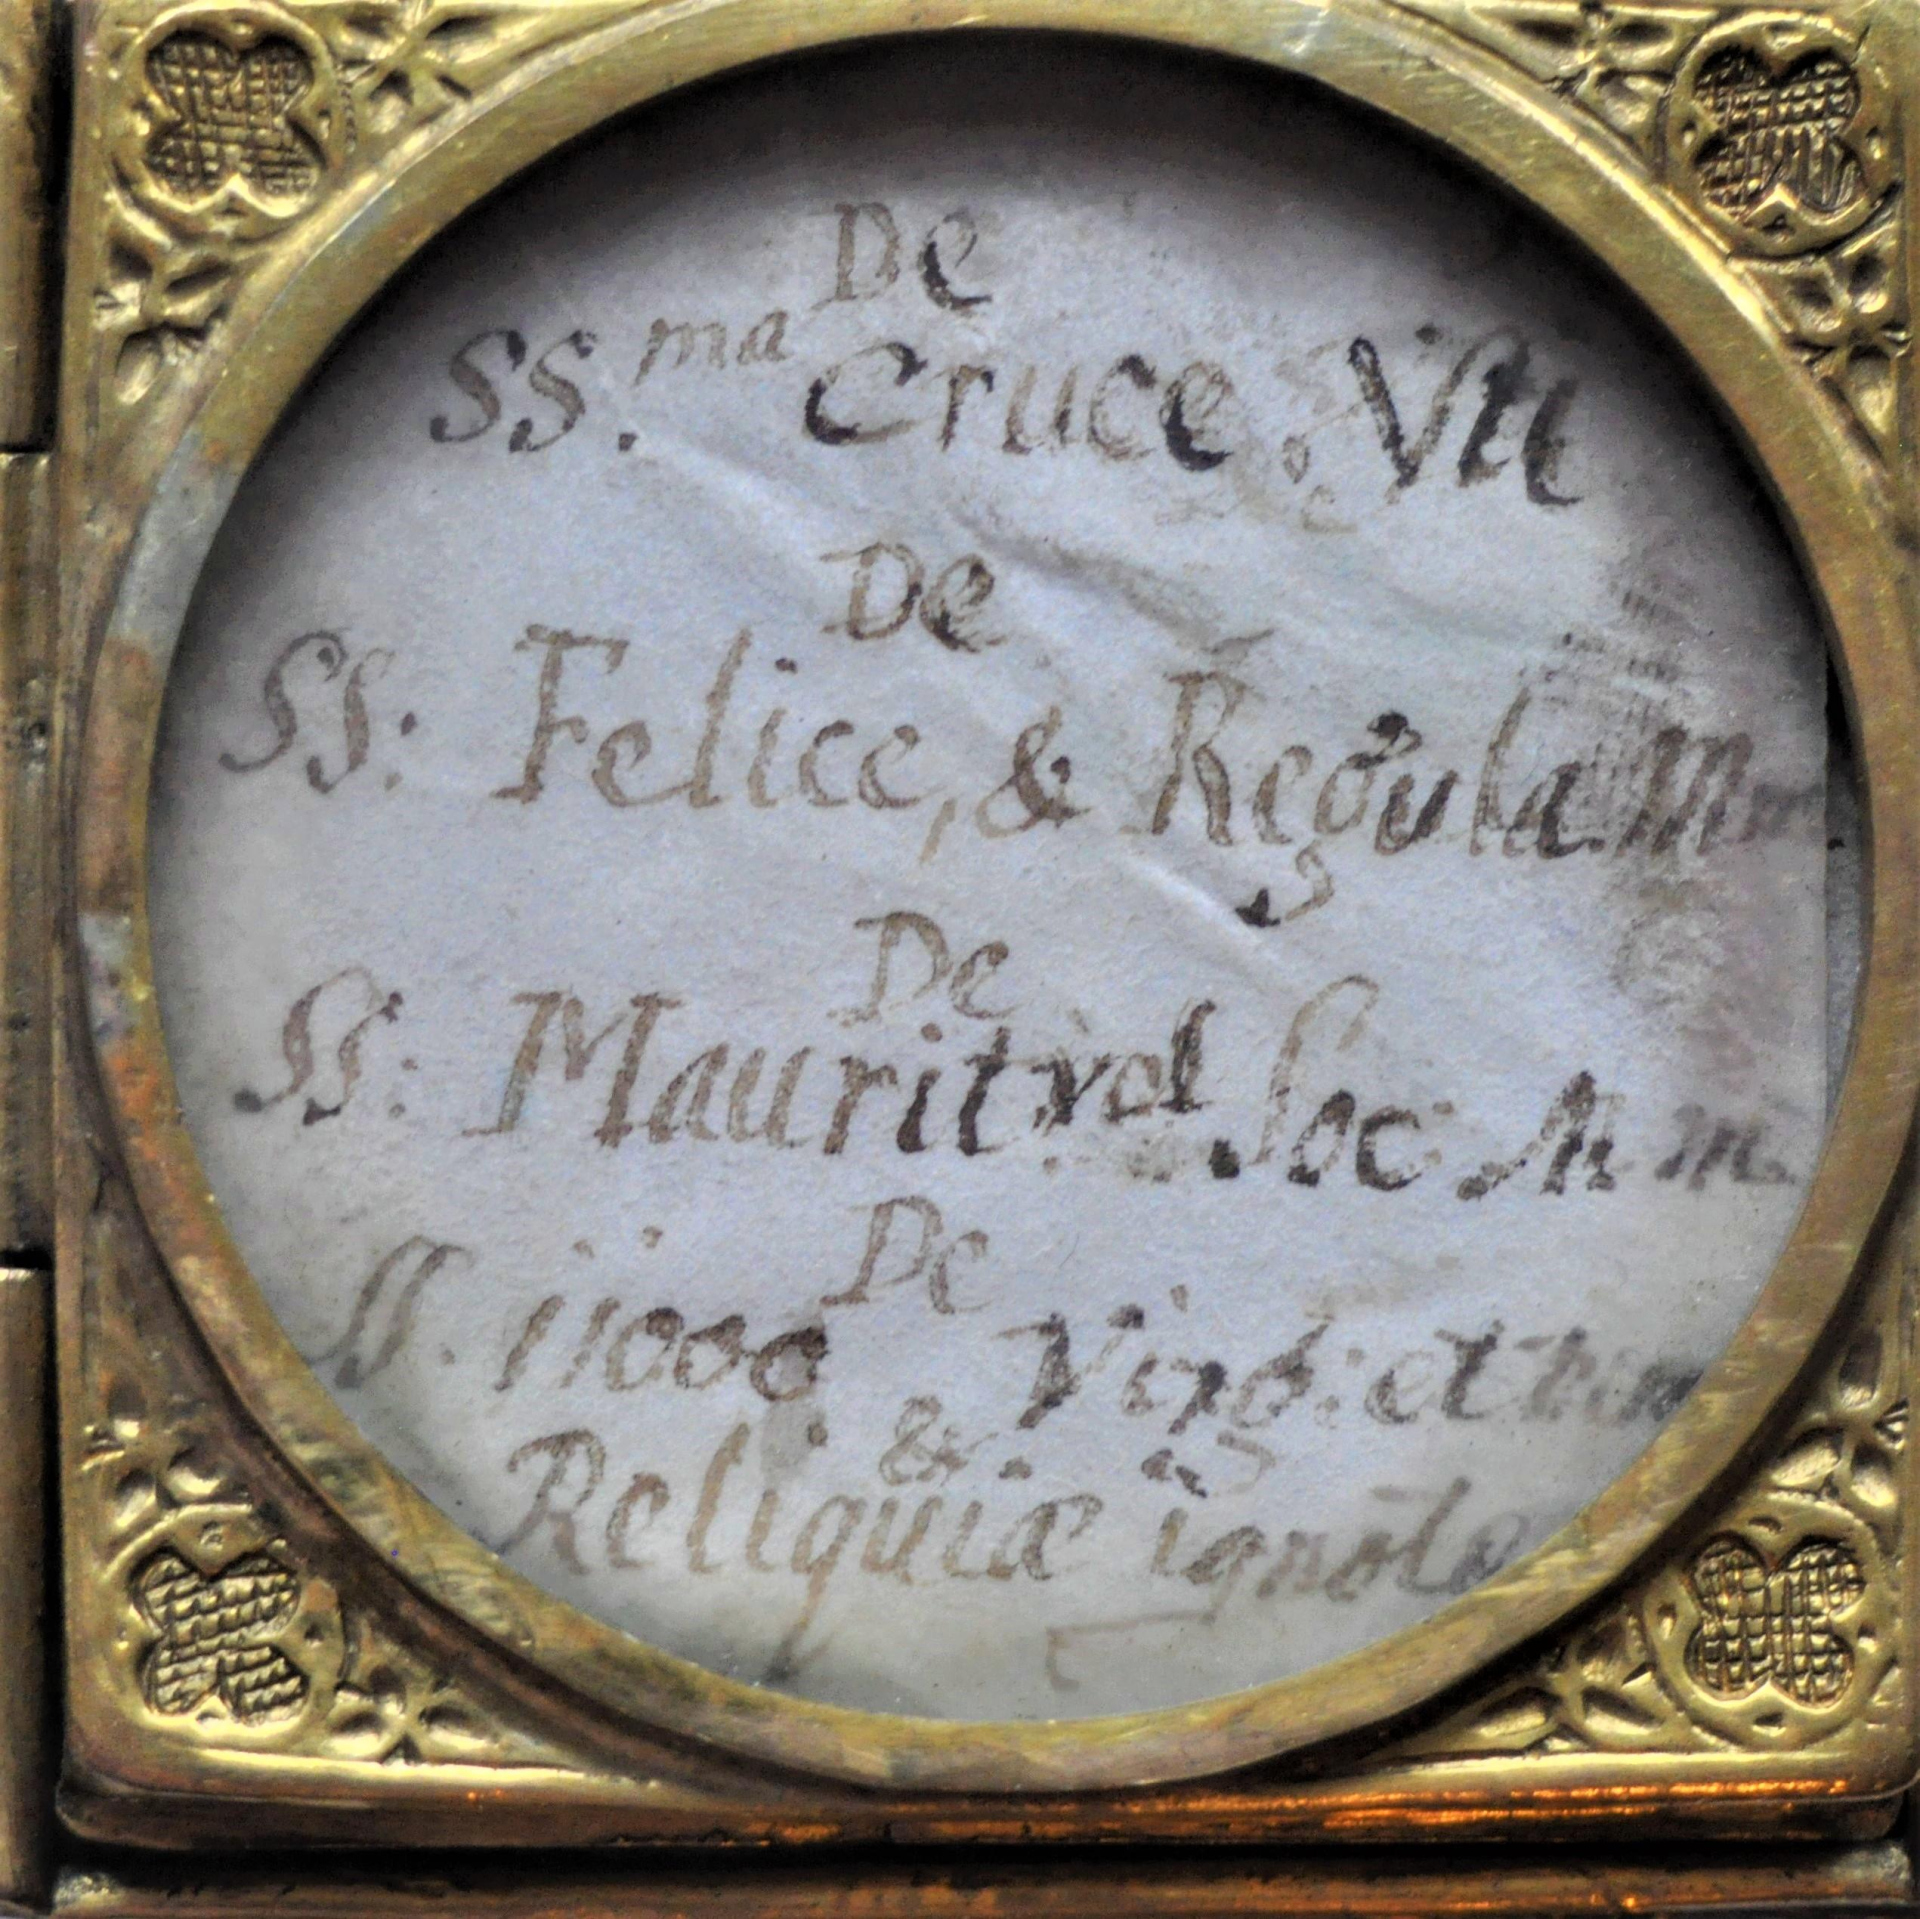 De
SS.ma Cruce
De
SS. Felice, & Regula M
De
SS. Maurit vel Soc M m
De
SS. 11000 Virg: et
&
Reliquiæ ignotæ